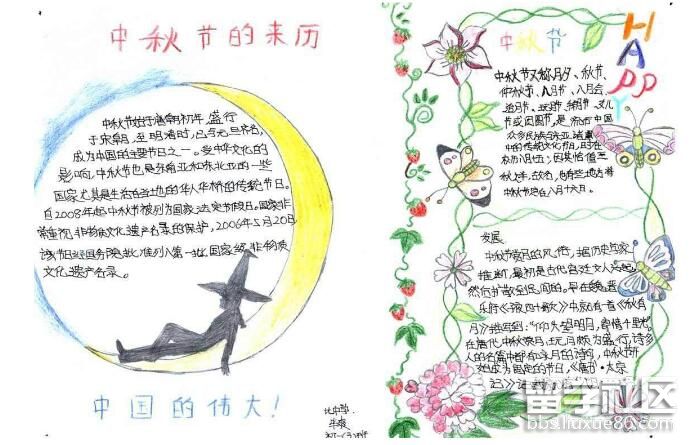 中秋节的来历
中秋节始于唐朝初年,盛行
于宋朝,至明清时,已与元旦齐名,
成为中国的主要节日之一。受中华文化的
影响,中秋节也是东南亚和东北亚的一些
国家尤其是生活在当地的华人华侨的传统节日。
自2008年起中秋节被列为国家法定节假日。国家非
常重视非物质文化遗产名录的保护,2006年5月20日,
该节日经国务院批准列入第一批国家级非物质
文化遗产名录。
中国的伟大!
中秋节
HAPPY
中秋节又称月夕、秋节、
仲秋节、八月节、八月会、
追月节、玩月节、拜月节、女儿
节或团圆节,是流行于中国
众多民族与东亚诸国
中的传统文化节日,时在
农历八月十五;因其恰值三
秋之半,故名,也有些地方将
中秋节定在八月十六日。
发展
中秋节赏月的风俗,据历史学家
推断,最初是古代宫廷文人兴起,
然后扩散至民间的。早在魏晋
乐府《子夜四十歌》中就有一首《秋有
月》描写到:“仰头望明月,寄情千里光”。
在唐代,中秋赏月、玩月颇为盛行,许多
人的名篇中都有咏月的诗句,中秋节开
始成为固定的节日,《唐书·太宗
记》
留学社区
bbs.liuxue86.com